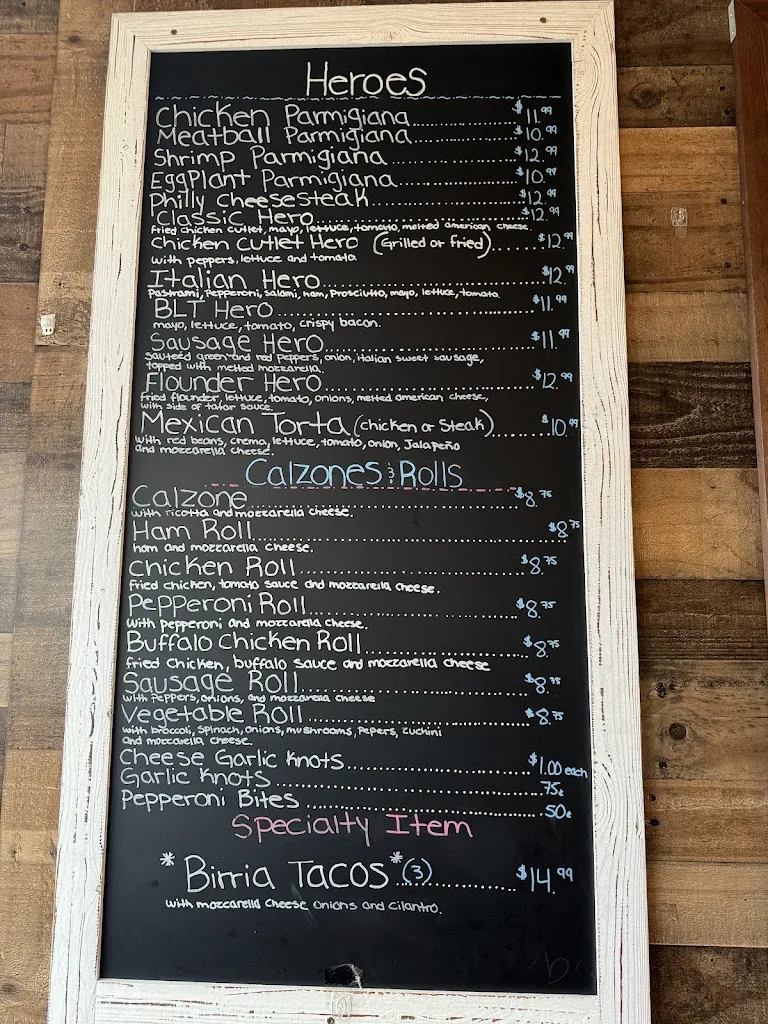 Heroes
Chicken Parmigiana $11.99
Meatball Parmigiana $10.99
Shrimp Parmigiana $12.99
EggPlant Parmigiana $10.99
Philly Cheesesteak $12.99
Classic Hero $12.99
Fried chicken cutlet, mayo, lettuce, tomato, melted american cheese.
Chicken Cutlet Hero (Grilled or fried) $12.99
with peppers, lettuce and tomato.
Italian Hero $12.99
Pastrami, Pepperoni, Salami, Ham, Prosciutto, mayo, lettuce, tomato.
BLT Hero $11.99
mayo, lettuce, tomato, crispy bacon.
Sausage Hero $11.99
Sauteed green and red peppers, onion, italian sweet sausage,
topped with melted mozzarella.
Flounder Hero $12.99
fried flounder, lettuce, tomato, onions, melted american cheese,
with side of tatar sauce.
Mexican Torta (chicken or Steak) $10.99
with red beans, crema, lettuce, tomato, onion, Jalapeño
and mozzarella cheese.
Calzones & Rolls
Calzone $8.75
with ricotta and mozzarella cheese.
Ham Roll $8.75
ham and mozzarella cheese.
Chicken Roll $8.75
fried chicken, tomato sauce and mozzarella cheese.
Pepperoni Roll $8.75
with pepperoni and mozzarella cheese.
Buffalo Chicken Roll $8.75
fried Chicken, buffalo sauce and mozzarella cheese
Sausage Roll $8.75
with Peppers, onions, and mozzarella cheese
Vegetable Roll $8.75
with broccoli, Spinach, onions, mushrooms, Pepers, zuchini
and mozzarella cheese.
Cheese Garlic Knots $1.00 each
Garlic Knots 75¢
Pepperoni Bites 50¢
Specialty Item
*Birria Tacos* (3) $14.99
with mozzarella cheese onions and cilantro.